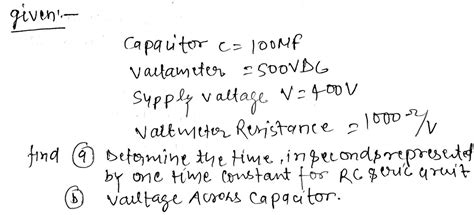 given:-
Capacitor C = 100Mf
Valtameter = 500VDC
Supply Valtage V = 400V
Valtmeter Resistance = 1000Ω/V
find ⓐ Determine the time, in seconds represented
by one time constant for RC series circuit
ⓑ Valtage Across Capacitor.